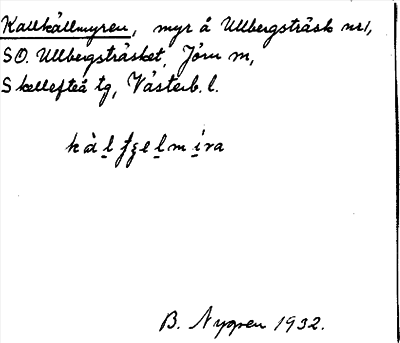 Kallkällmyren, myr å Ullbergsträsk nr 1,
SO. Ullbergsträsket, Jörn sn,
Skellefteå tg, Västerb. l.
B. Nygren 1932.